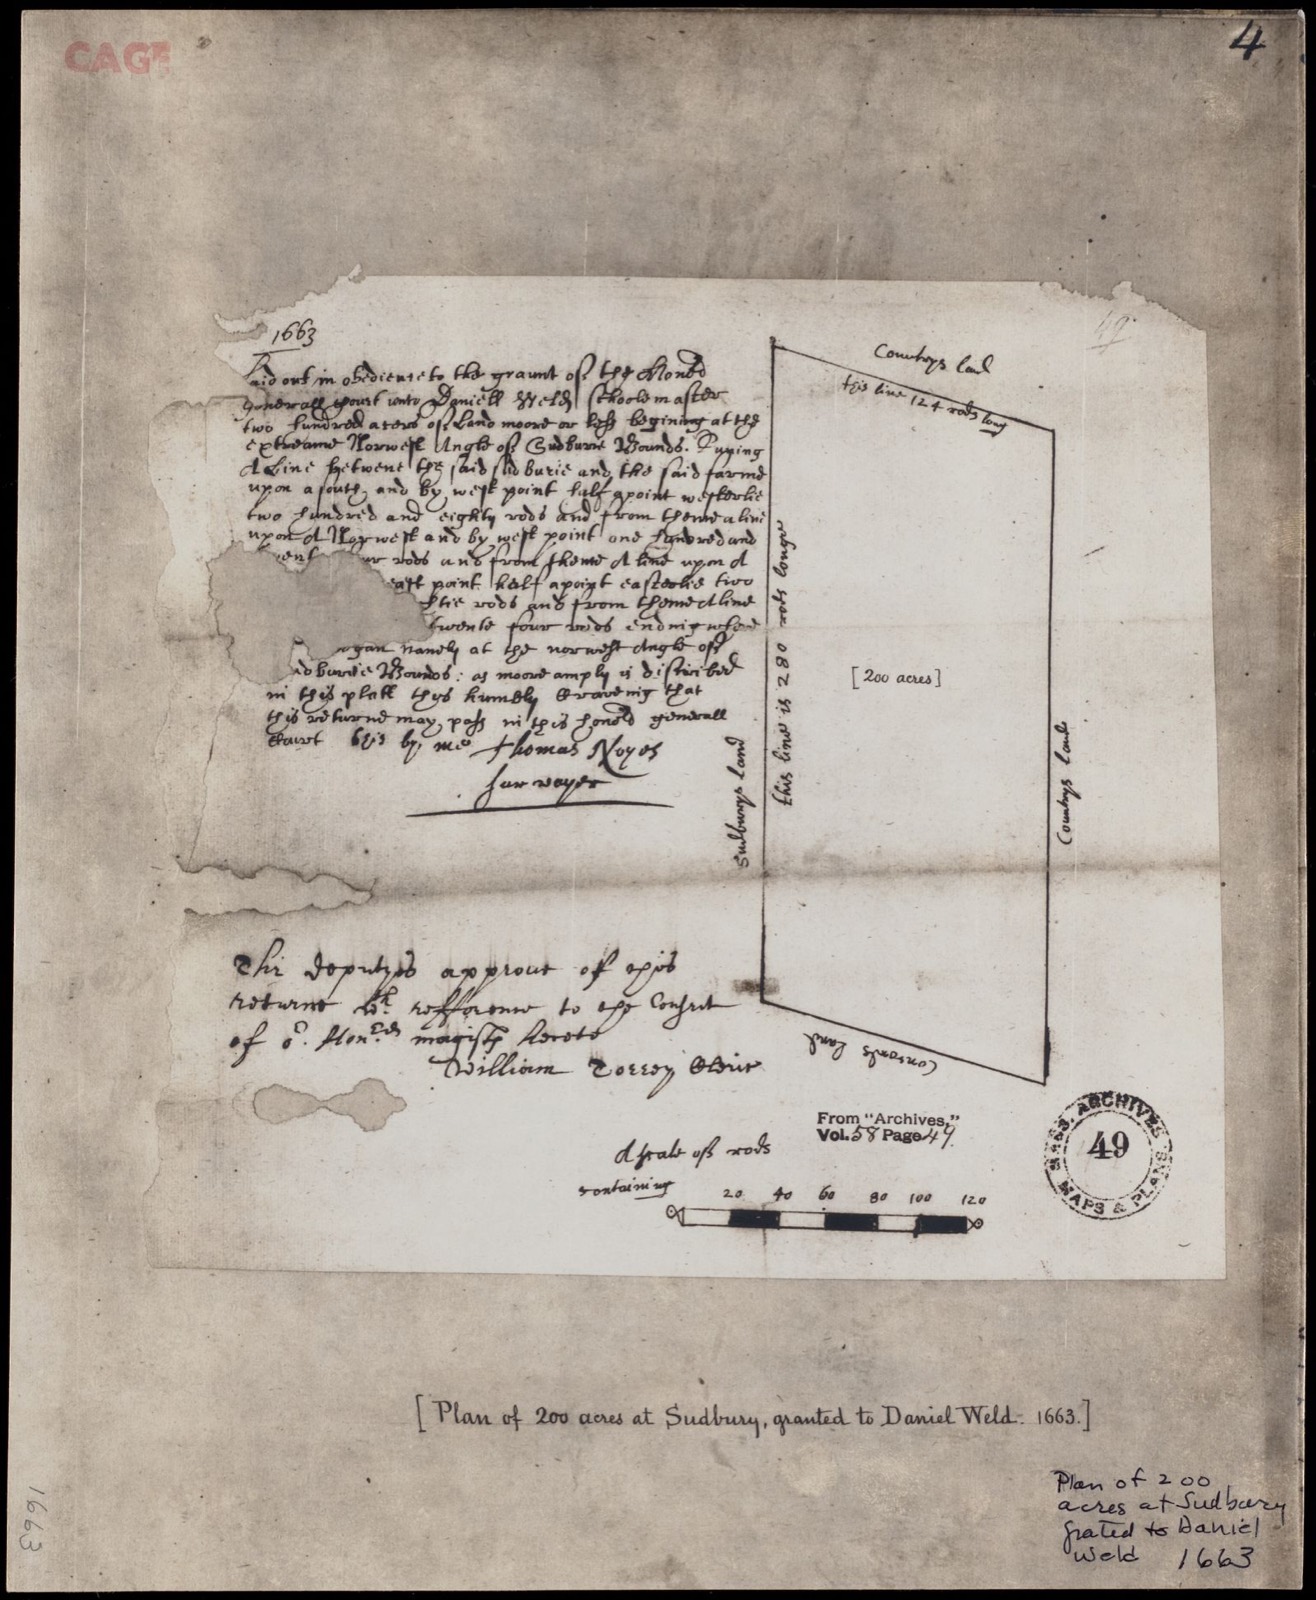 CAGE
4
49
1663
Laid out in obedience to the graunt of the Honord
Generall Court unto Daniell Weld, schoolemaster
two hundred acers of Land moore or less begining at the
extreame Norwest Angle of Sudburie Bounds. Runing
A Line betwene the said sudburie and the said farme
upon a south, and by west point half apoint westerlie
two hundred and eighty rods and from thence a line
upon A Norwest and by west point one hundred and
rods and from thence A line upon A
east point half apoint easterlie two
htie rods and from thence A line
twente four rods ending where
egan namely at the norwest Angle of
udburie Bounds: as moore amply is discribed
in this platt thus humbly Craveing that
this returne may pass in this honord generall
Court this by me Thomas Noyes
survayer
Countrys land
this line 124 rods long
this line is 280 rods longe
Sudburys land
[200 acres]
Countrys land
Concords land
The deputyes approve of this
returne wth refference to the Consent
of or. Honred magistr hereto
William Torrey Cleric
From "Archives,"
Vol. 58 Page 49.
MASS. ARCHIVES
49
MAPS & PLANS.
A scale of rods
containing
20 40 60 80 100 120
[Plan of 200 acres at Sudbury, granted to Daniel Weld. 1663.]
Plan of 200
acres at Sudbury
grated to Daniel
Weld 1663
1663